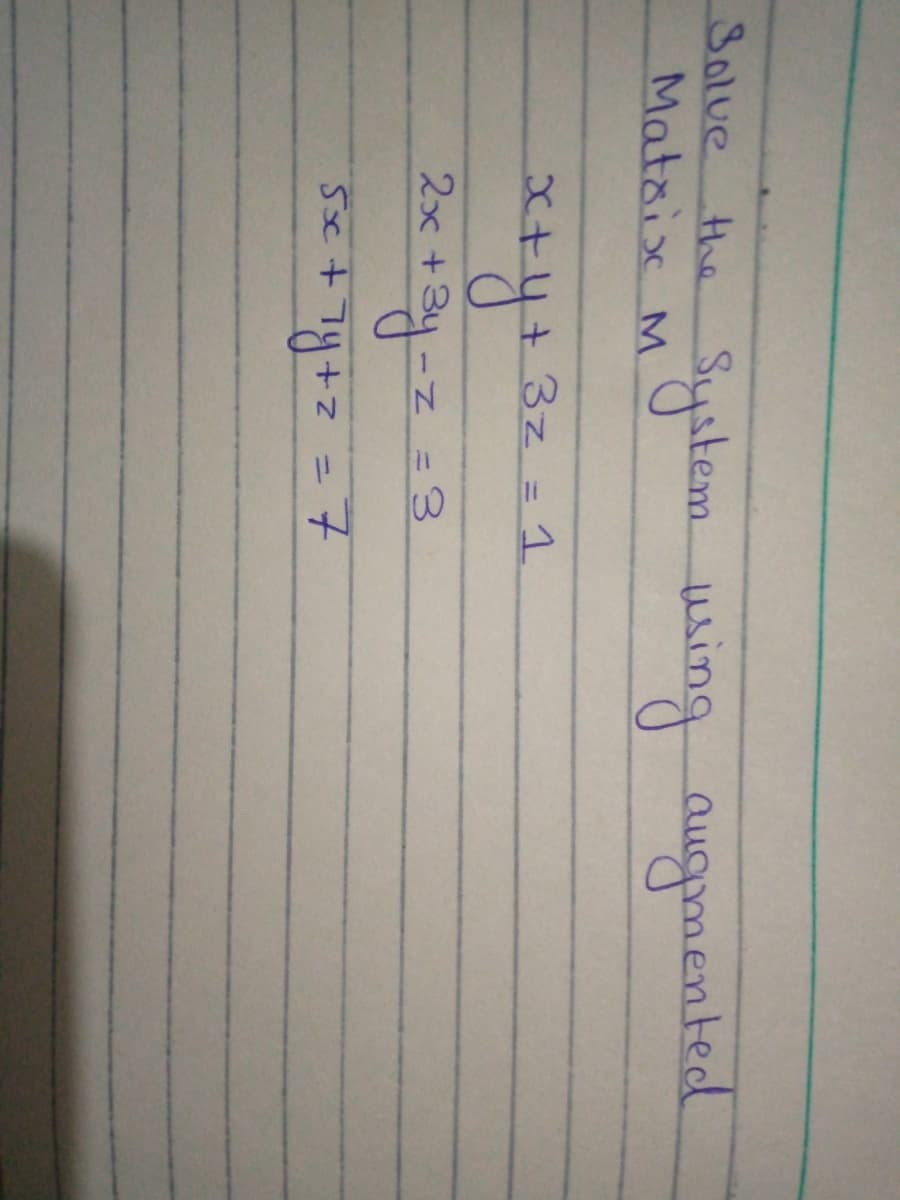 Solve the System using augmented
Matrix M
x + y + 3z = 1
2x + 3y - z = 3
5x + 7y + z = 7